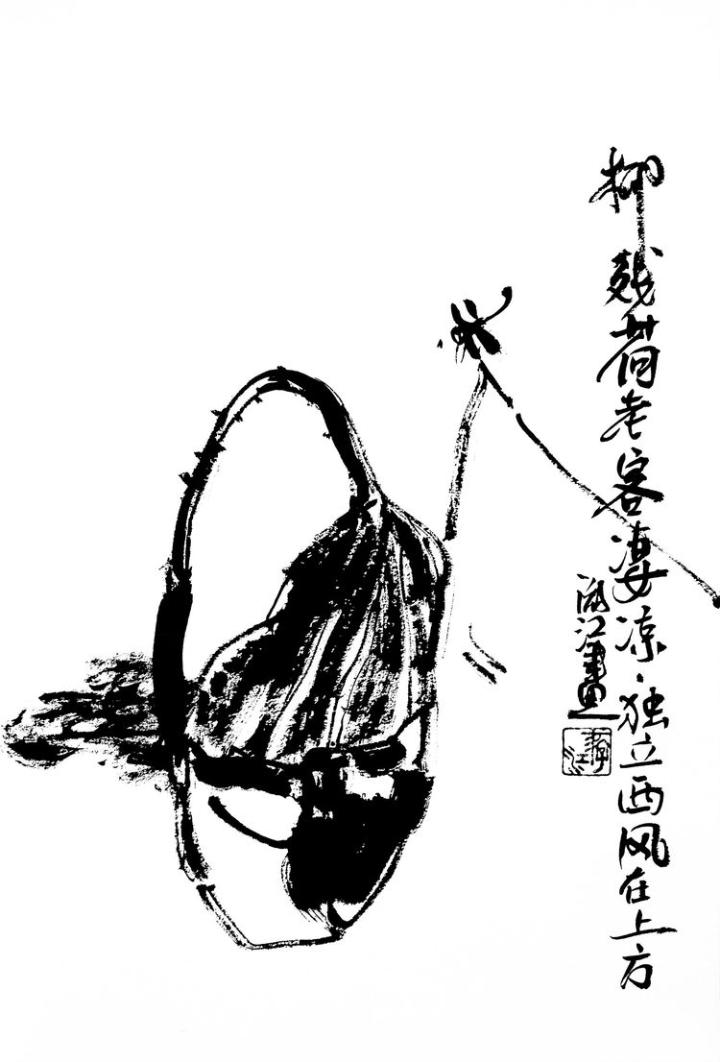 柳残荷老客凄凉、独立西风在上方
江画